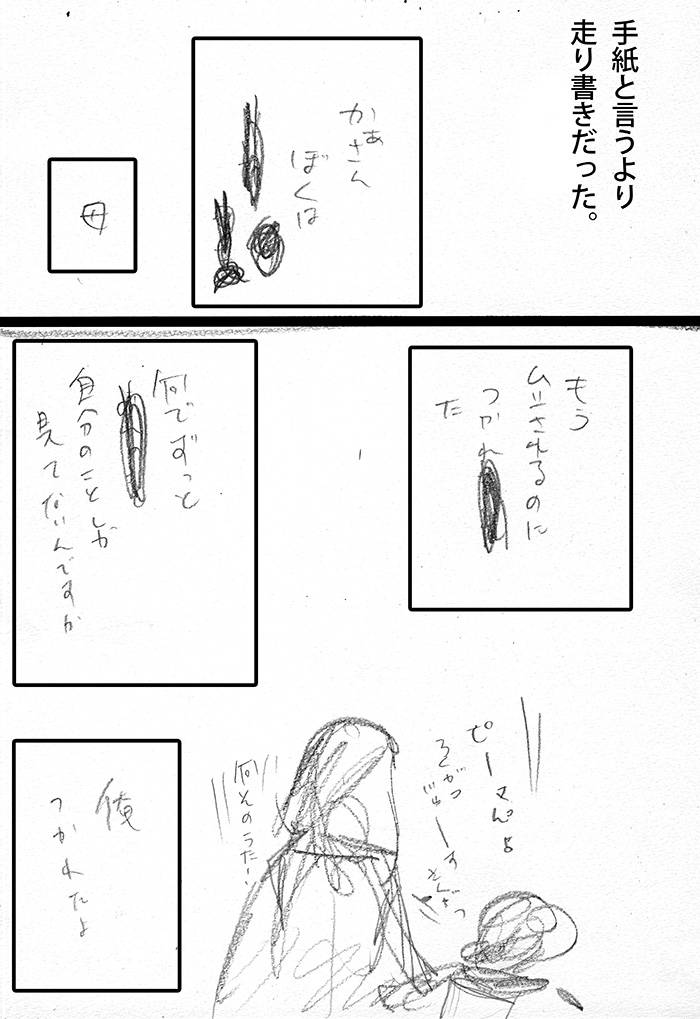 手紙と言うより
走り書きだった。
かぁさん
ぼくは
母
もう
ムシされるのに
つかれ
た
何でずっと
自分のことしか
見てないんですか
ピーマんよ
何そのうた!
俺
つかれたよ